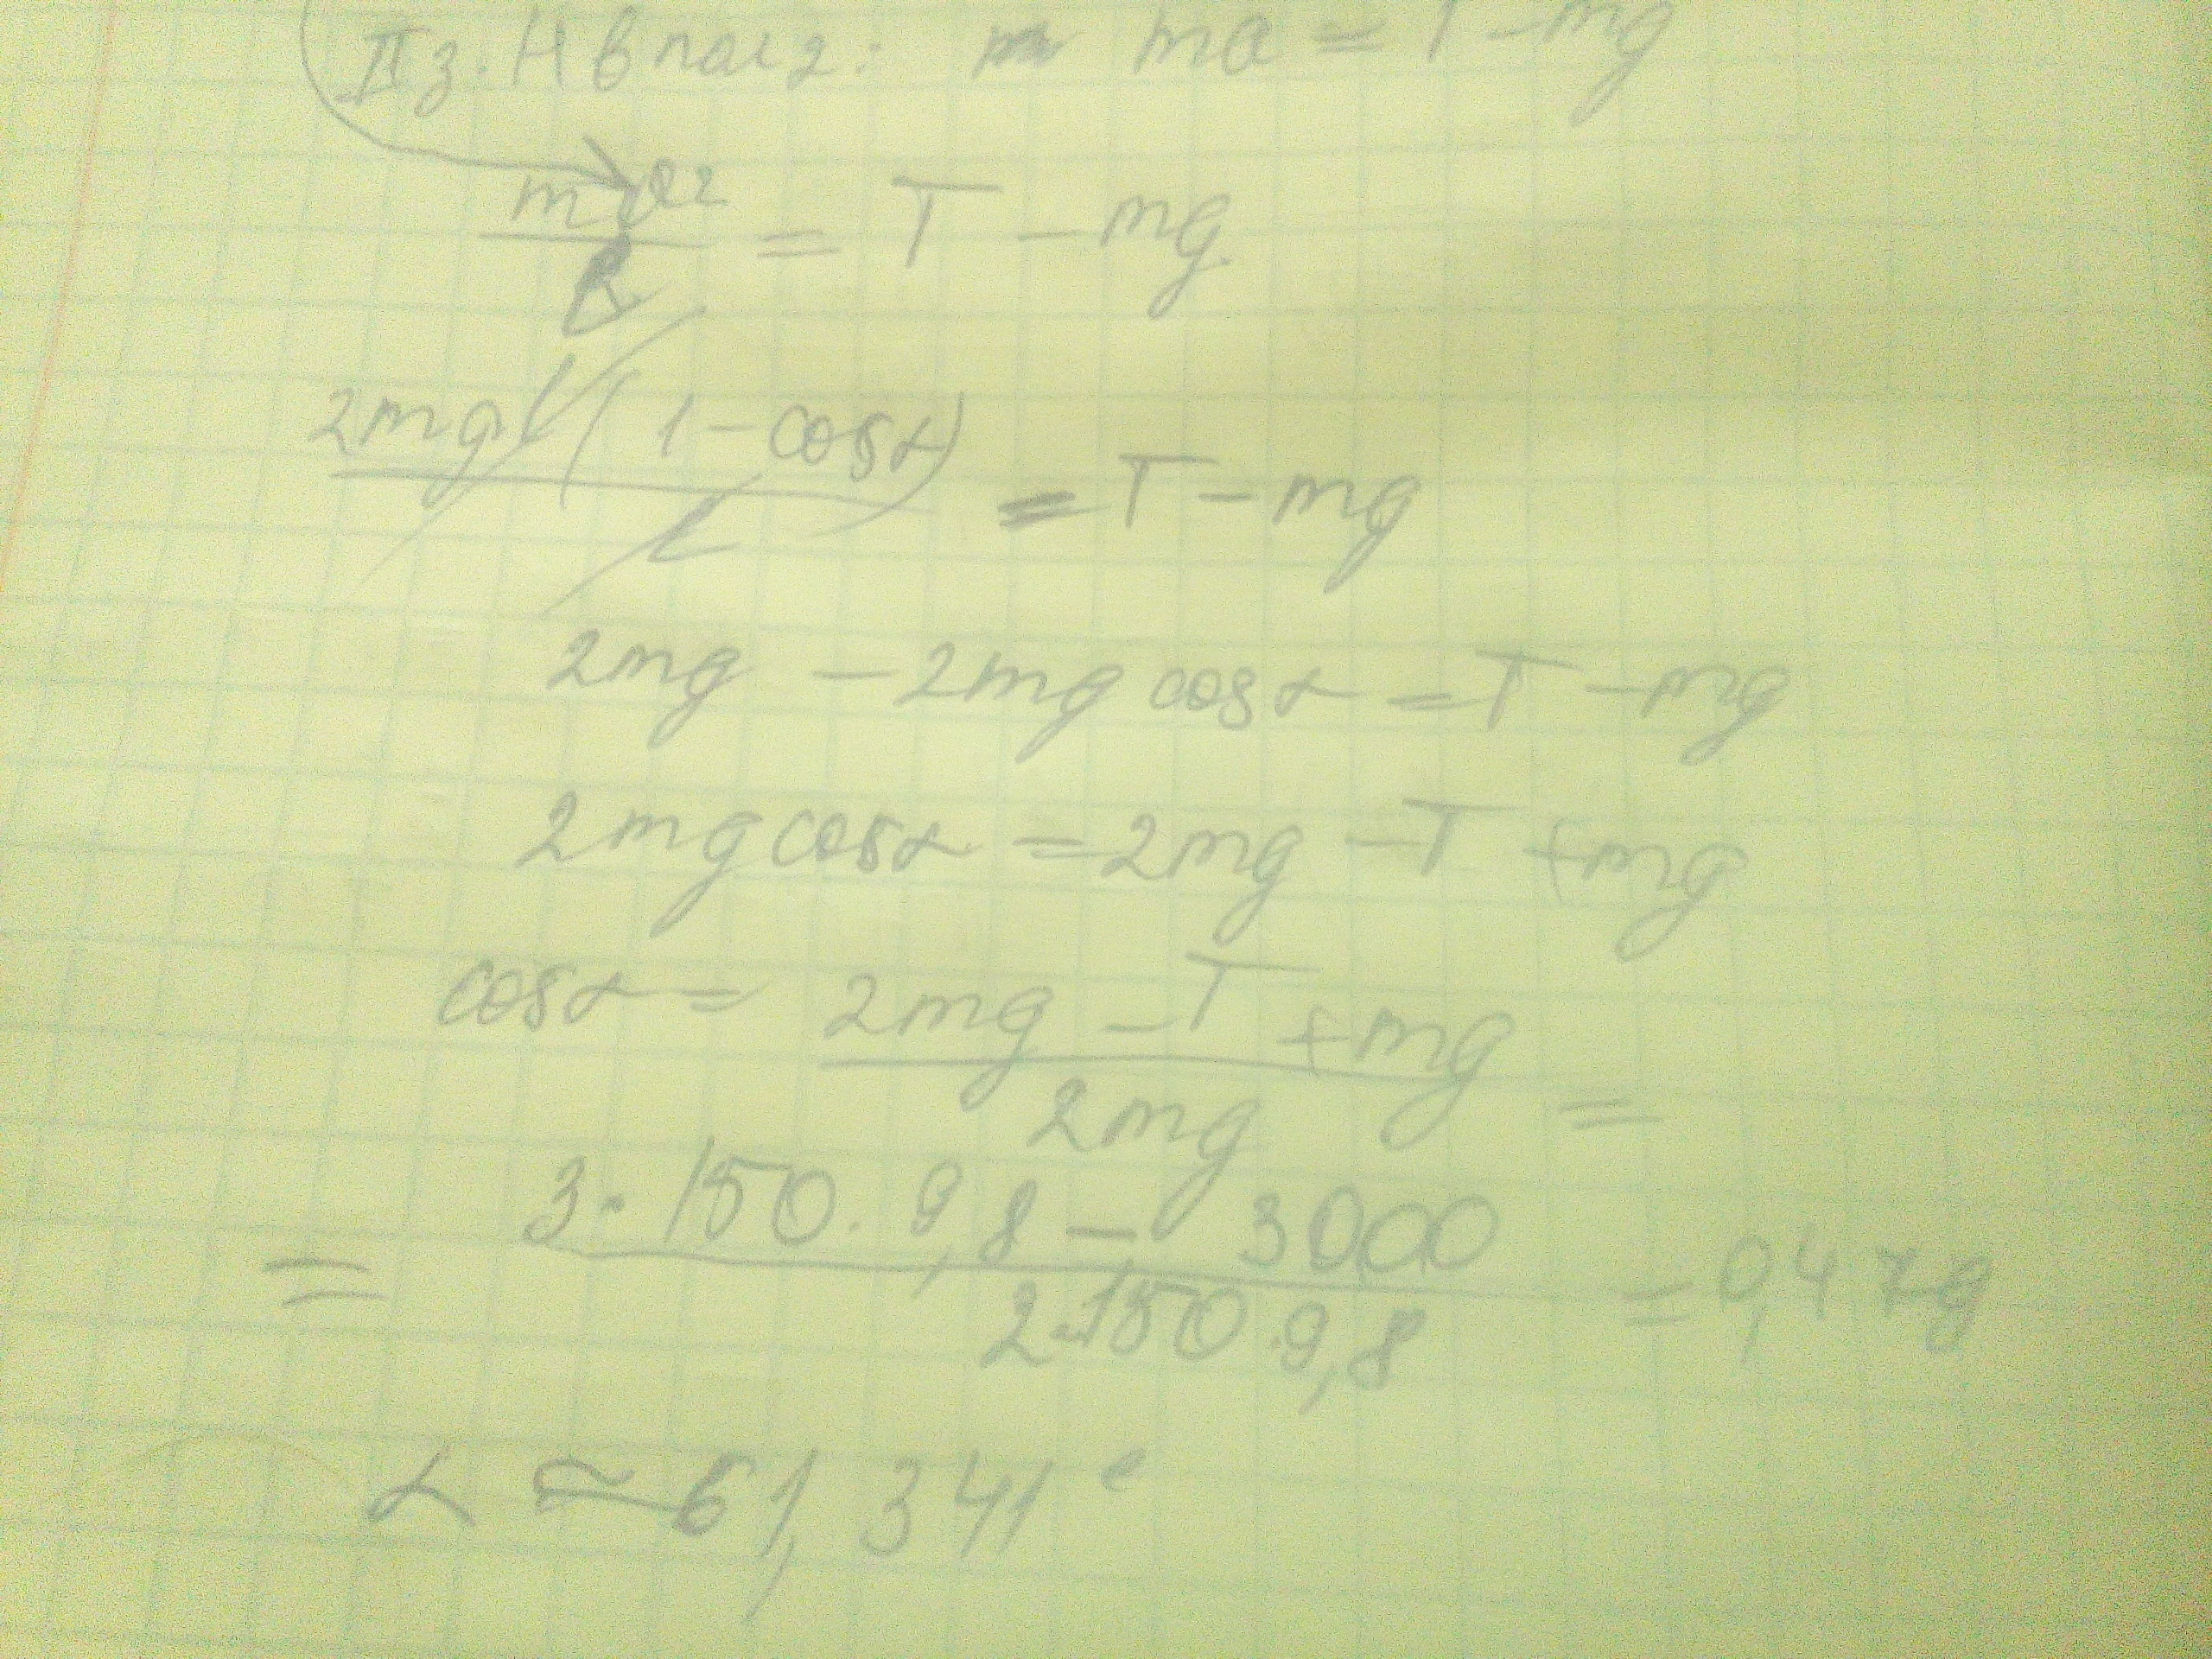 II з. Н в пол 2: ma = T - mg
mυ²/l = T - mg
2mgl(1 - cosα)/l = T - mg
2mg - 2mg cosα = T - mg
2mg cosα = 2mg - T + mg
cosα = (2mg - T + mg)/(2mg) =
= (3·150·9,8 - 3000)/(2·150·9,8) = 0,479
α ≈ 61,341°